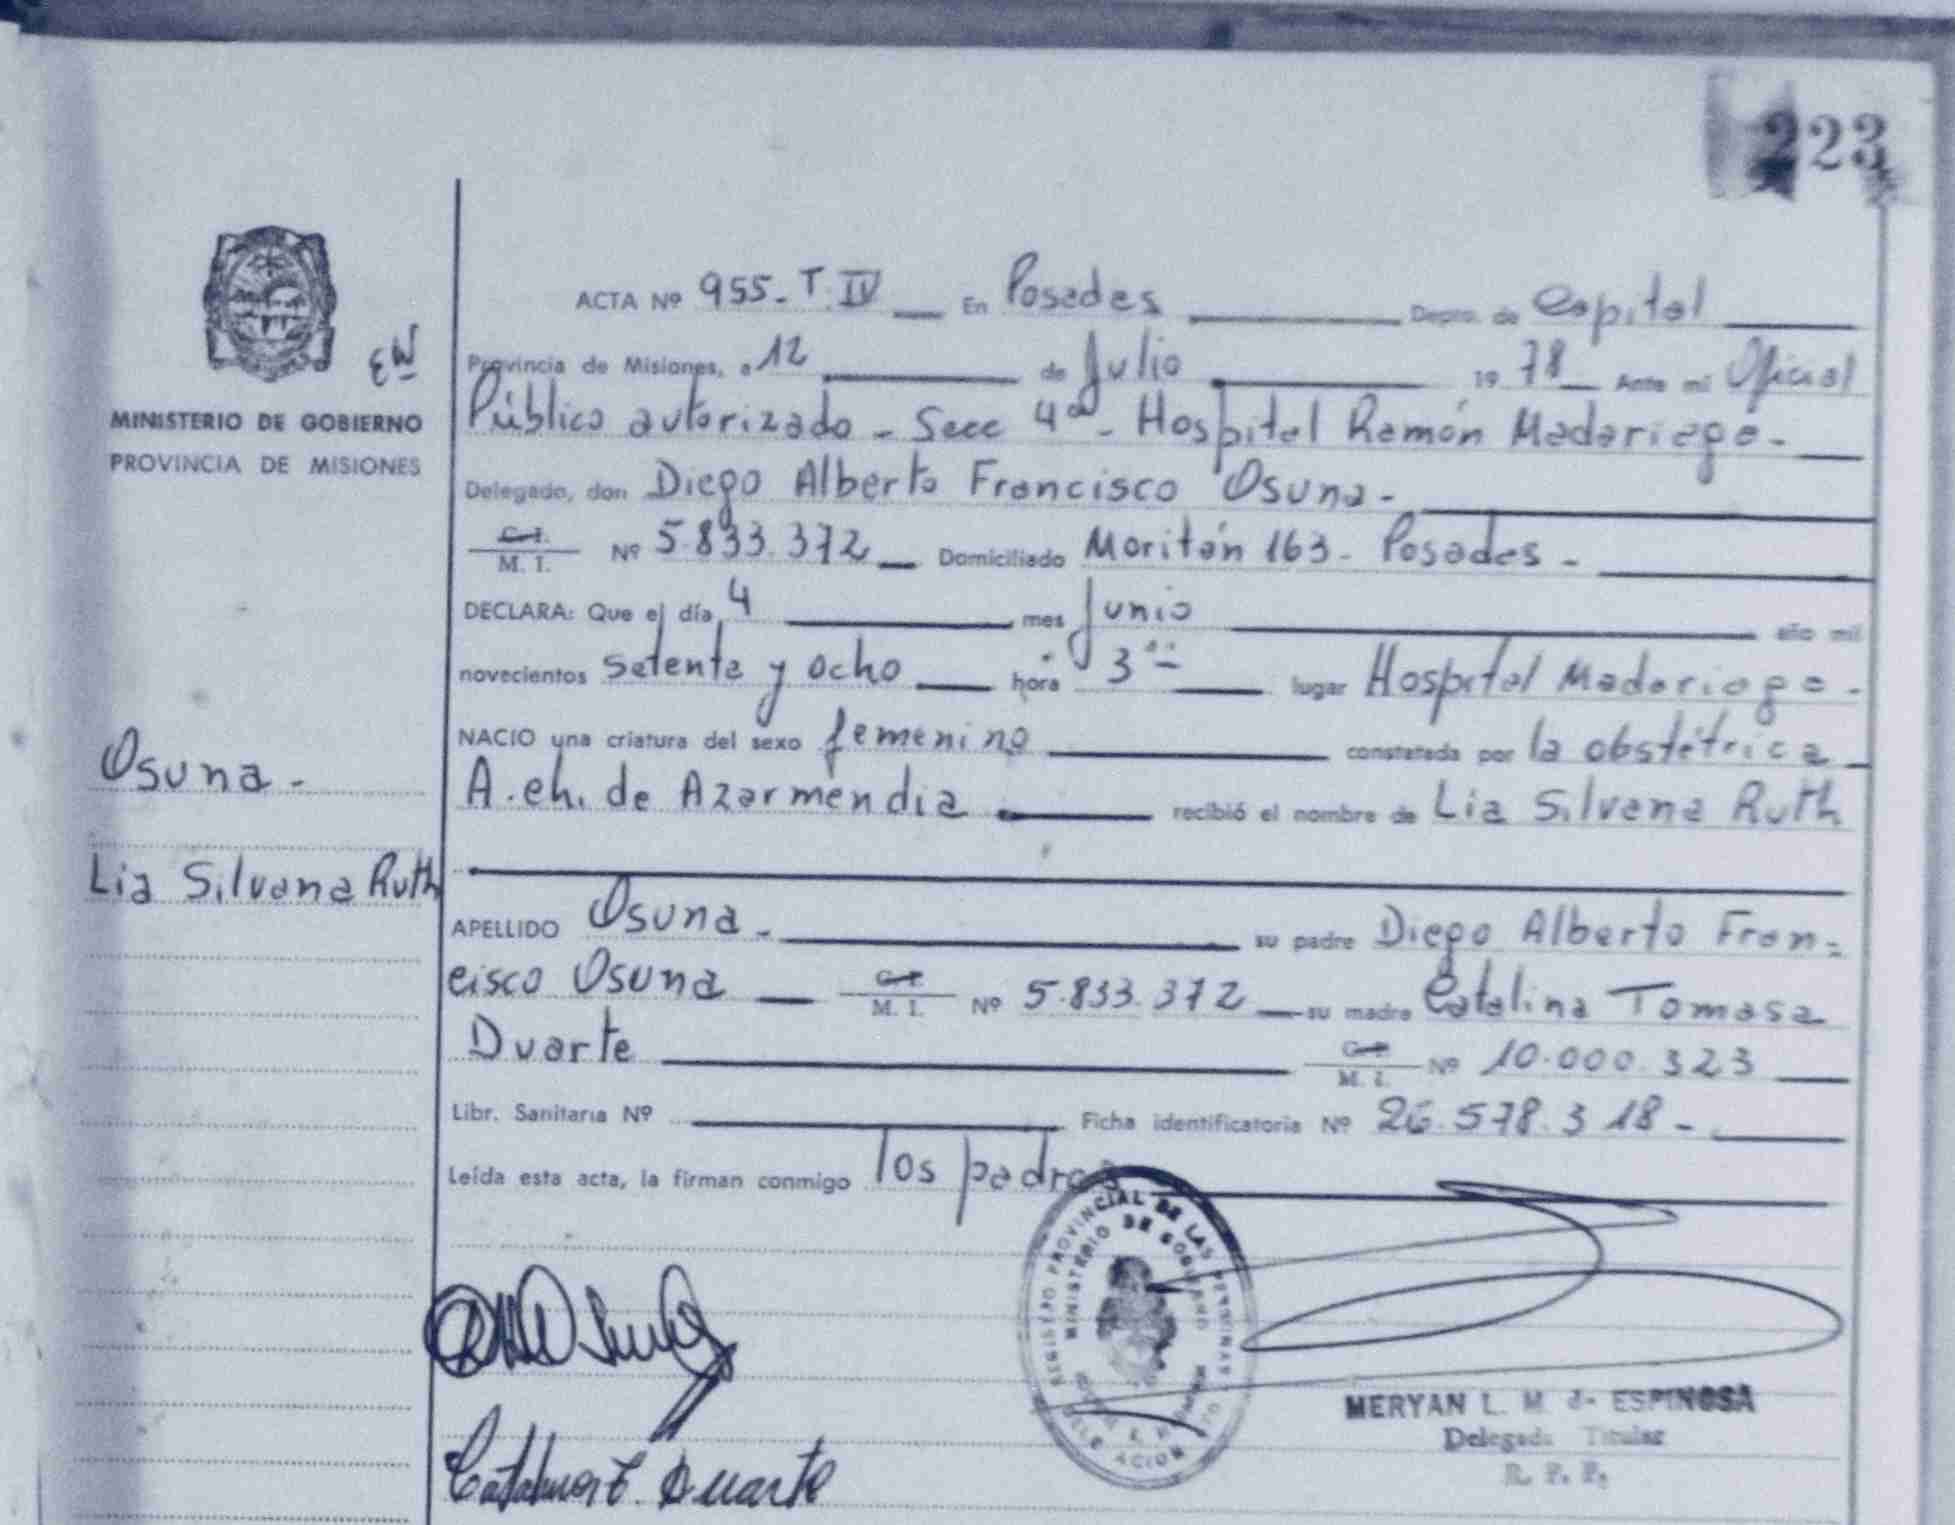 223
ACTA Nº 955. T. IV En Posadas Depto. de Capital
Provincia de Misiones, a 12 de Julio 19 78 Ante mi Oficial
MINISTERIO DE GOBIERNO
PROVINCIA DE MISIONES
Público autorizado - Secc 4ª - Hospital Ramón Madariaga -
Delegado, don Diego Alberto Francisco Osuna -
C. I.
M. I. Nº 5.833.372 Domiciliado Moritán 163 - Posadas -
DECLARA: Que el día 4 mes Junio año mil
novecientos setenta y ocho hora 3 lugar Hospital Madariaga -
NACIO una criatura del sexo femenino constatada por la obstétrica
A. ch. de Azarmendia recibió el nombre de Lia Silvana Ruth
Osuna -
Lia Silvana Ruth
APELLIDO Osuna - su padre Diego Alberto Fran-
cisco Osuna C. I. M. I. Nº 5.833.372 su madre Catalina Tomasa
Duarte C. I. M. I. Nº 10.000.323
Libr. Sanitaria Nº Ficha identificatoria Nº 26.578.318 -
Leída esta acta, la firman conmigo los padres
REGISTRO PROVINCIAL DE LAS PERSONAS
MINISTERIO DE GOBIERNO
DELEGACION
MERYAN L. M. de ESPINOSA
Delegada Titular
R. P. P.
Catalina T. Duarte